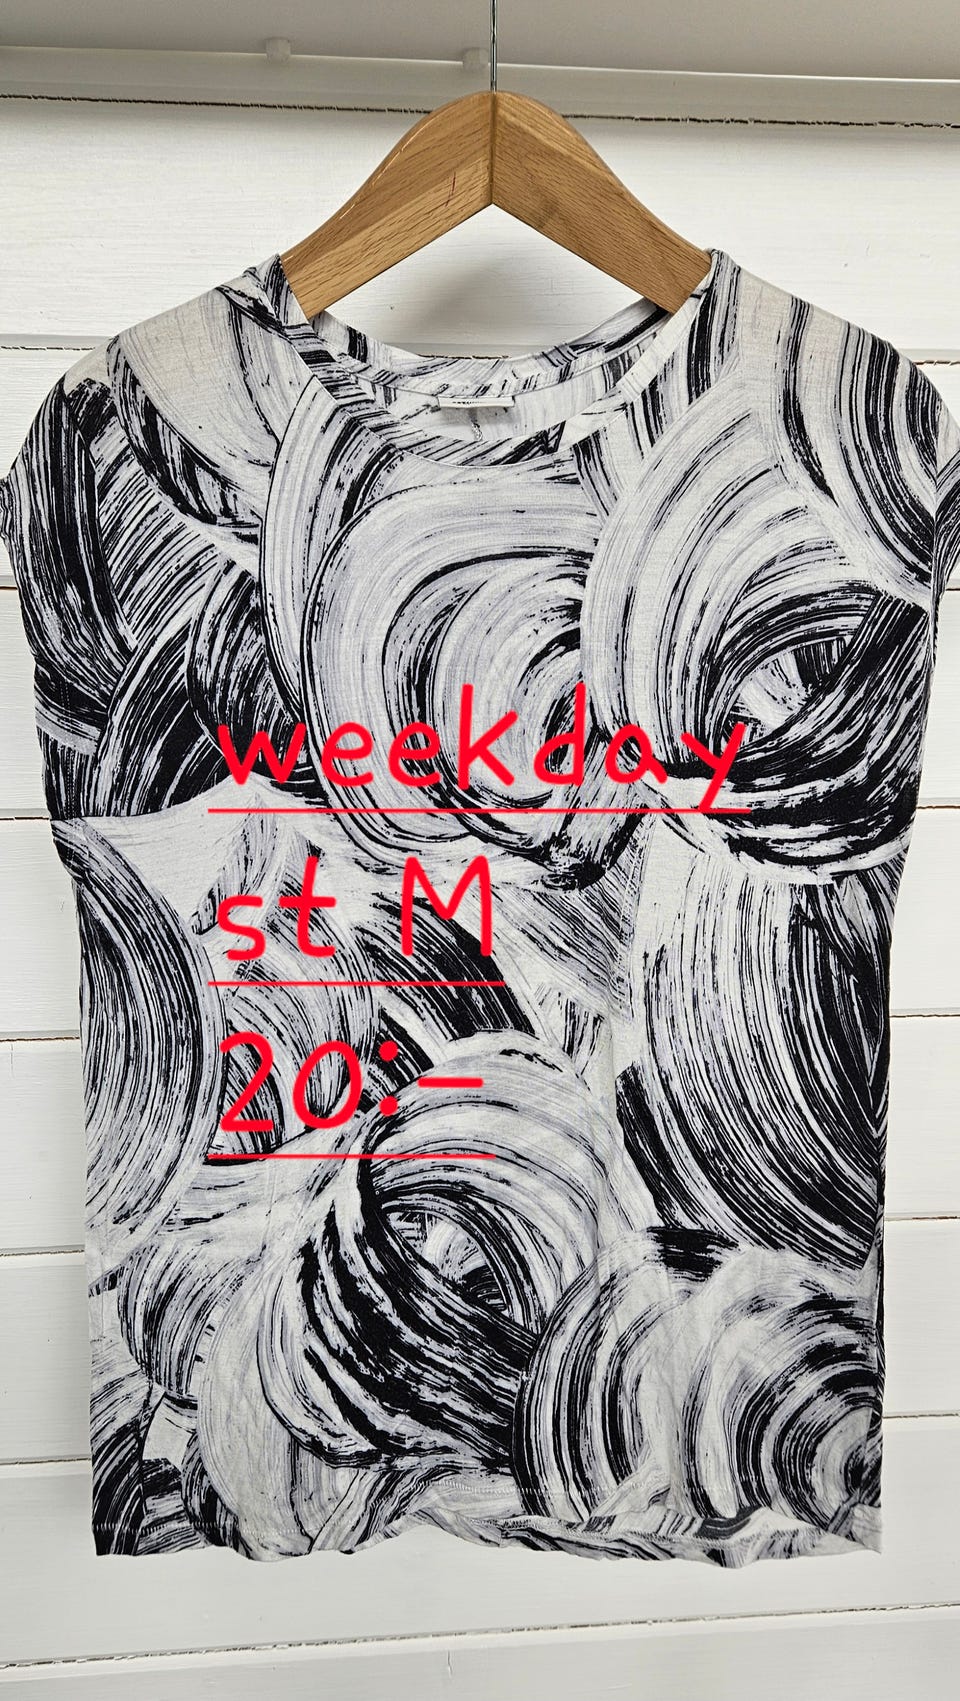 weekday
st M
20:-